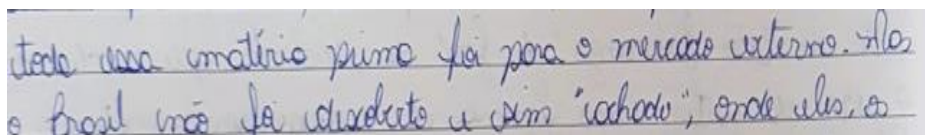 toda essa matéria prima foi para o mercado externo. Mas
o Brasil não foi descoberto e sim "achado", onde eles, os